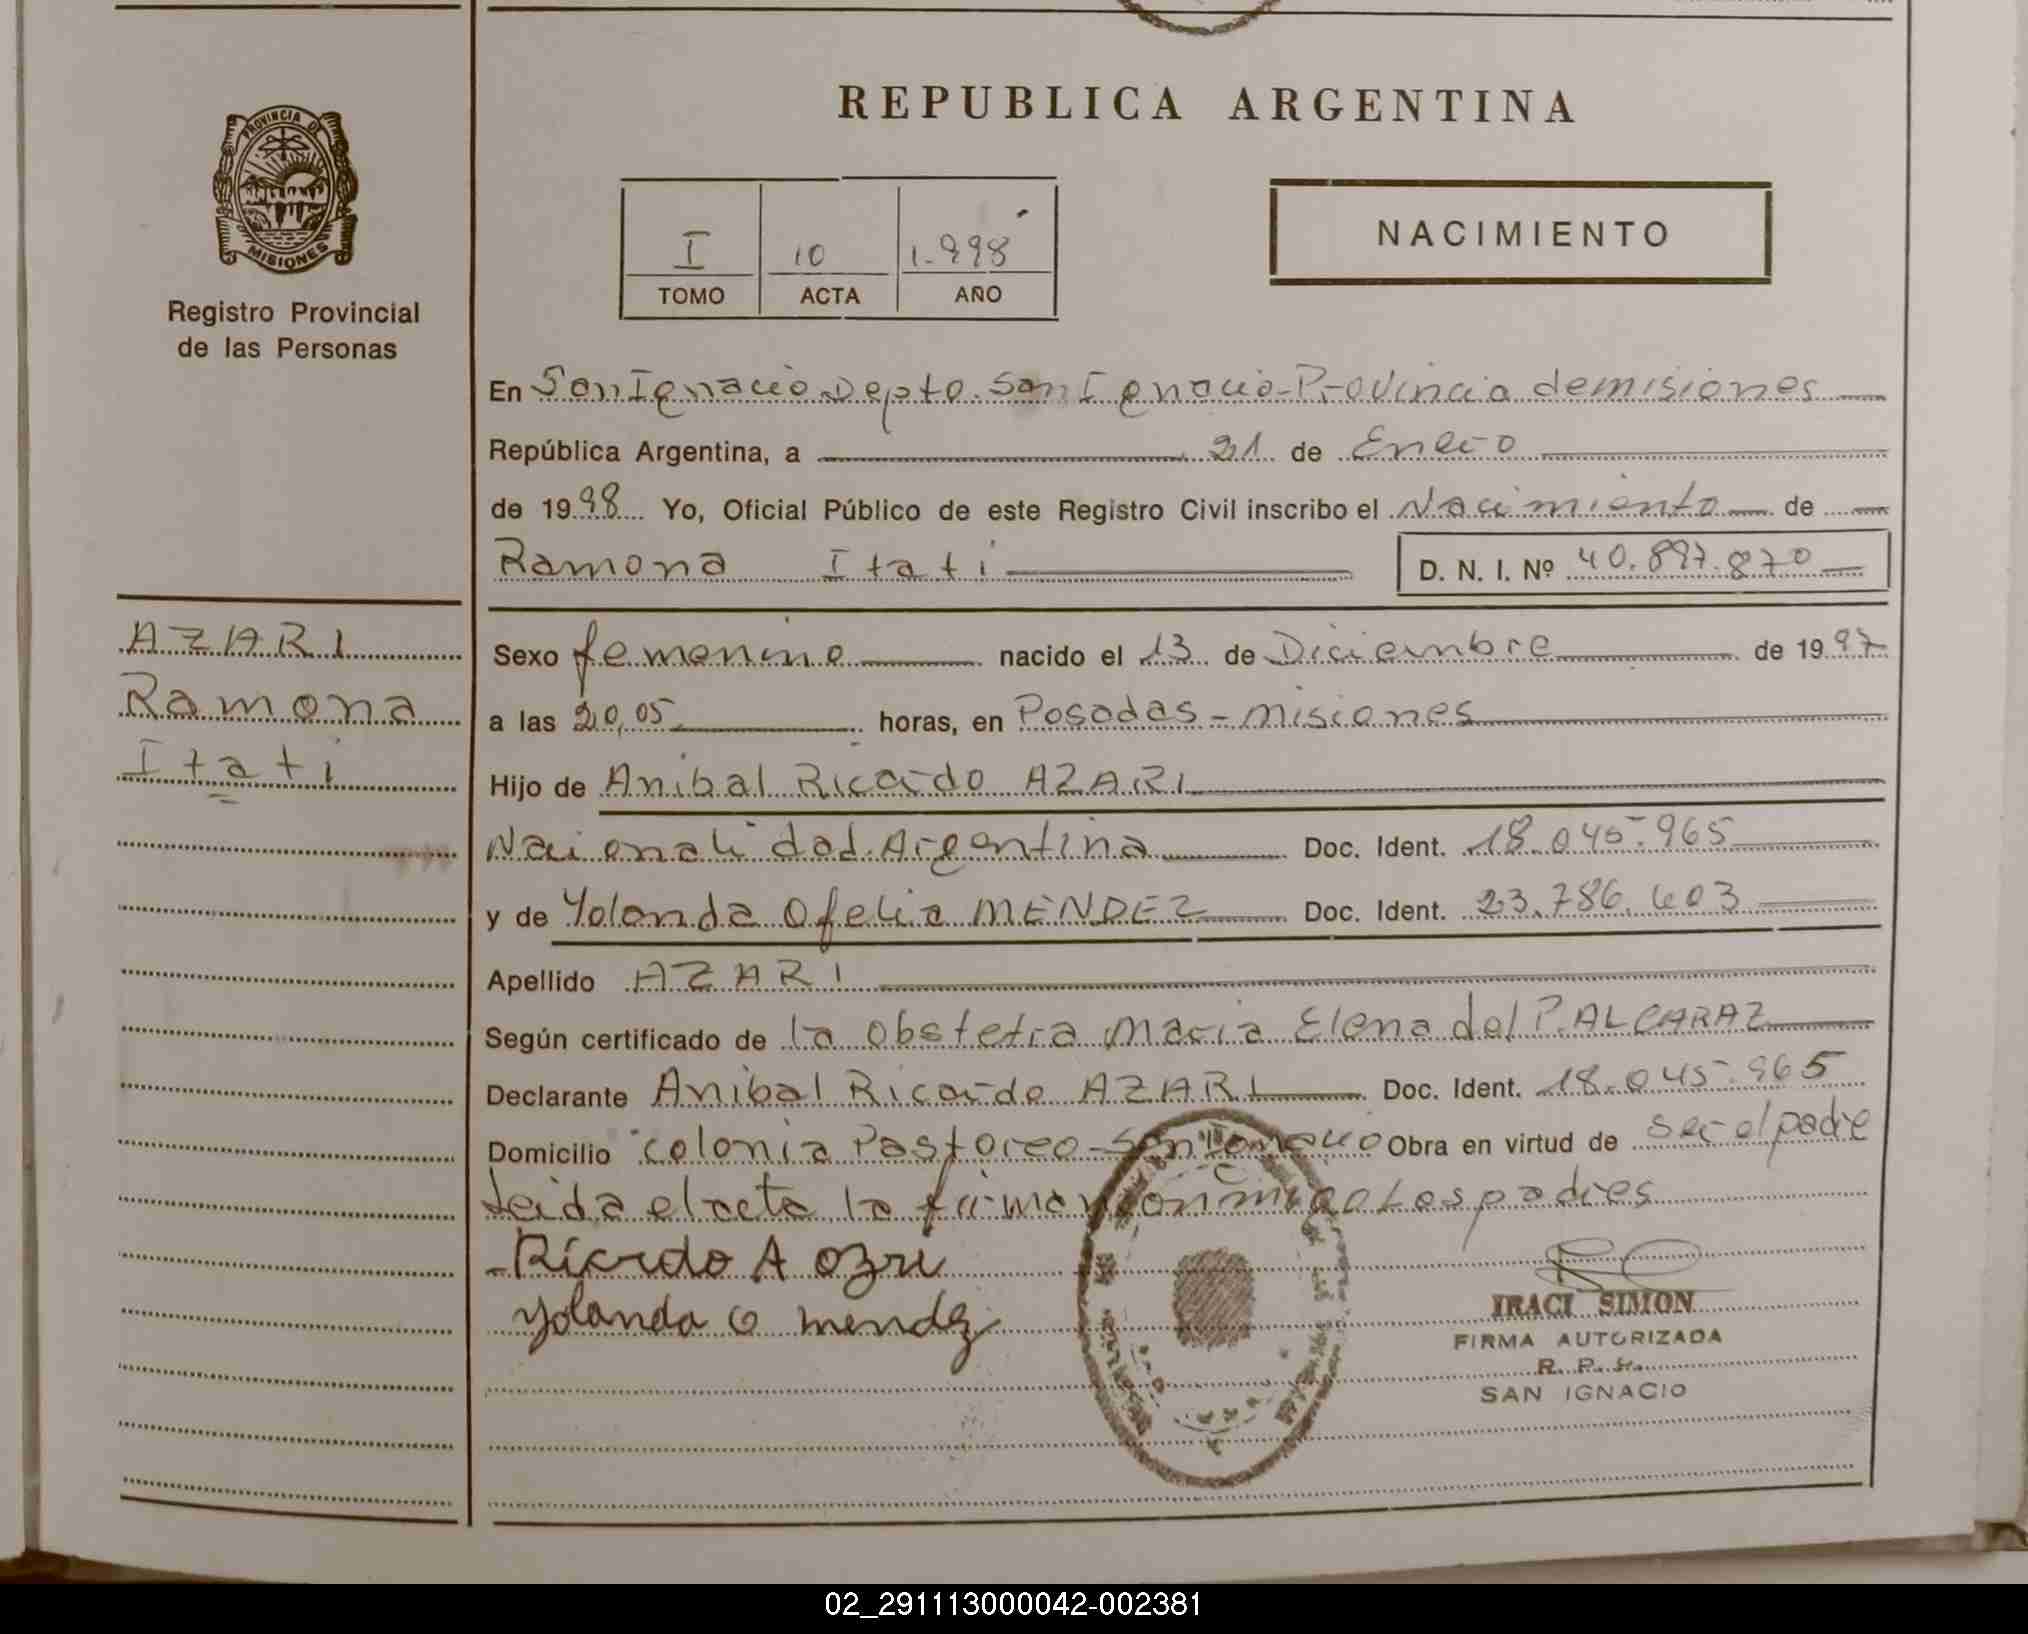 REPUBLICA ARGENTINA
PROVINCIA DE
MISIONES
Registro Provincial
de las Personas
I 10 1.998
TOMO ACTA AÑO
NACIMIENTO
En San Ignacio Depto. San Ignacio-Provincia de misiones
República Argentina, a 21 de Enero
de 1998 Yo, Oficial Público de este Registro Civil inscribo el Nacimiento de
Ramona Itati D. N. I. Nº 40.897.870
AZARI
Ramona
Itati
Sexo femenino nacido el 13 de Diciembre de 1997
a las 20,05 horas, en Posadas - misiones
Hijo de Anibal Ricardo AZARI
Nacionalidad Argentina Doc. Ident. 18.045.965
y de Yolanda Ofelia MENDEZ Doc. Ident. 23.786.603
Apellido AZARI
Según certificado de la obstetra Maria Elena del P. ALCARAZ
Declarante Anibal Ricardo AZARI Doc. Ident. 18.045.965
Domicilio colonia Pastoreo-San Ignacio Obra en virtud de ser el padre
Leida el acta la firman conmigo Los padres
Ricrdo A
Yolanda O mendez
IRACI SIMON
FIRMA AUTORIZADA
R. P. P.
SAN IGNACIO
02_291113000042-002381